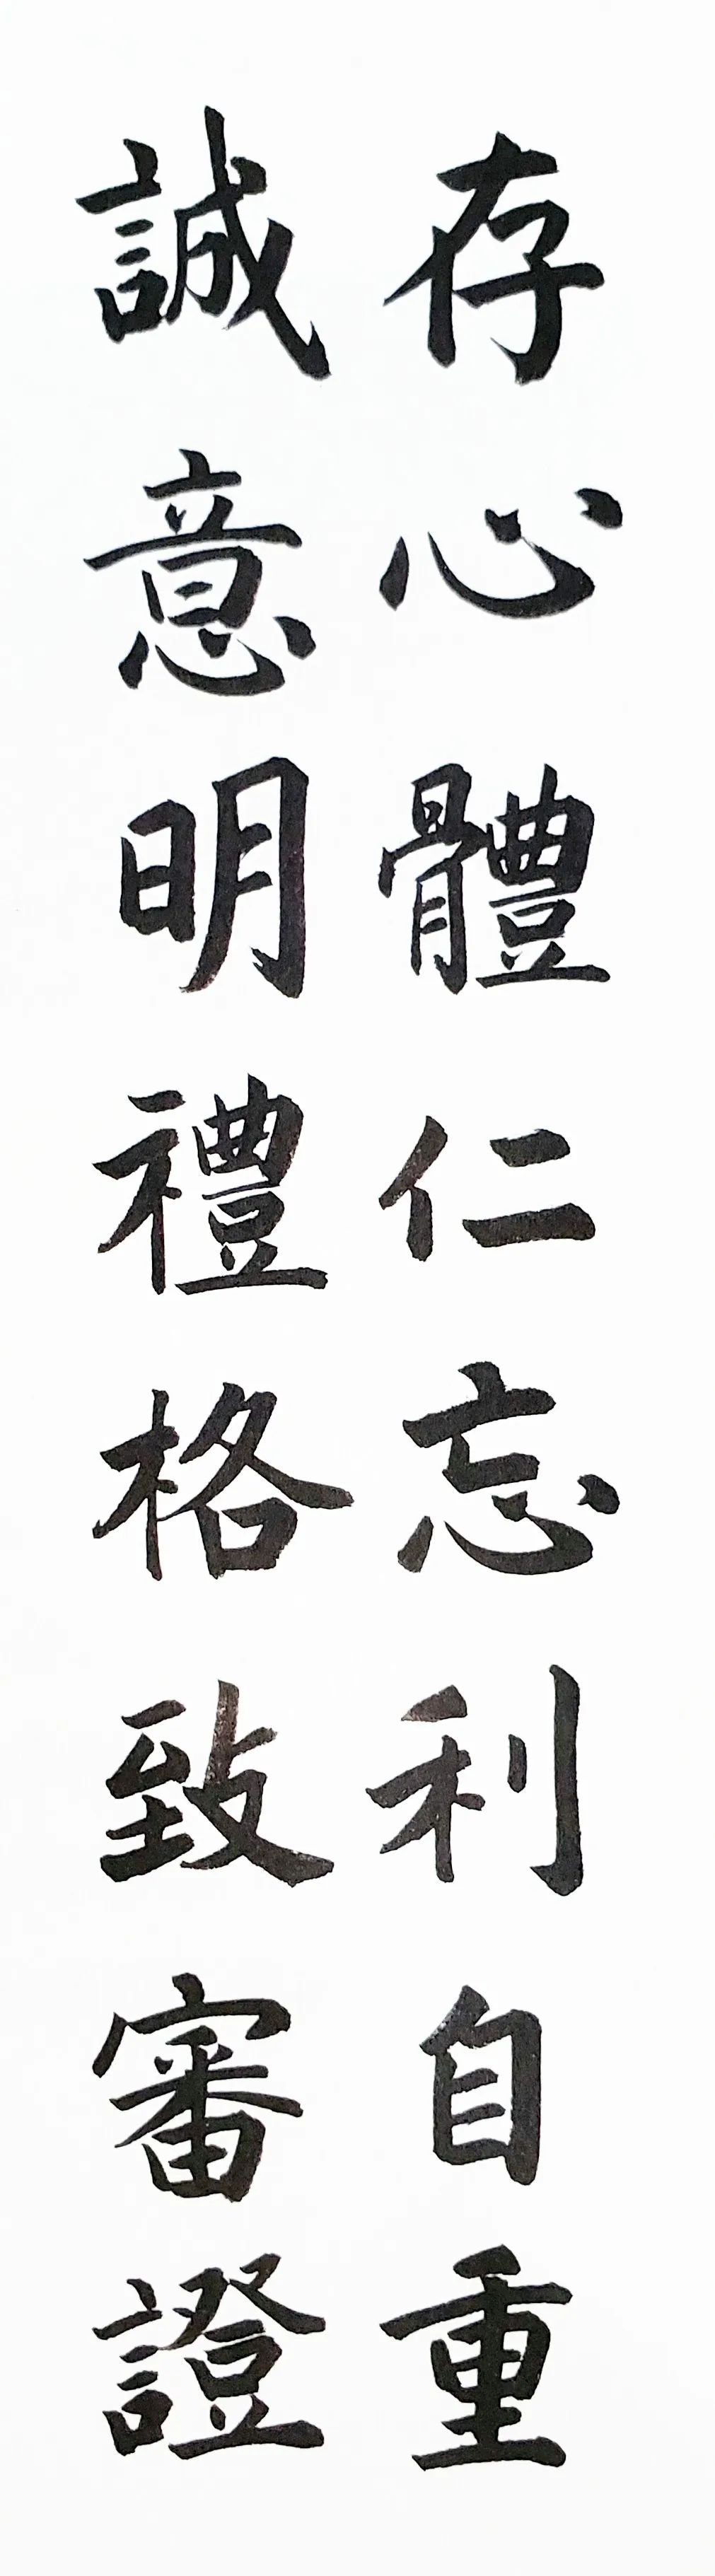 存心體仁忘利自重
誠意明禮格致審證